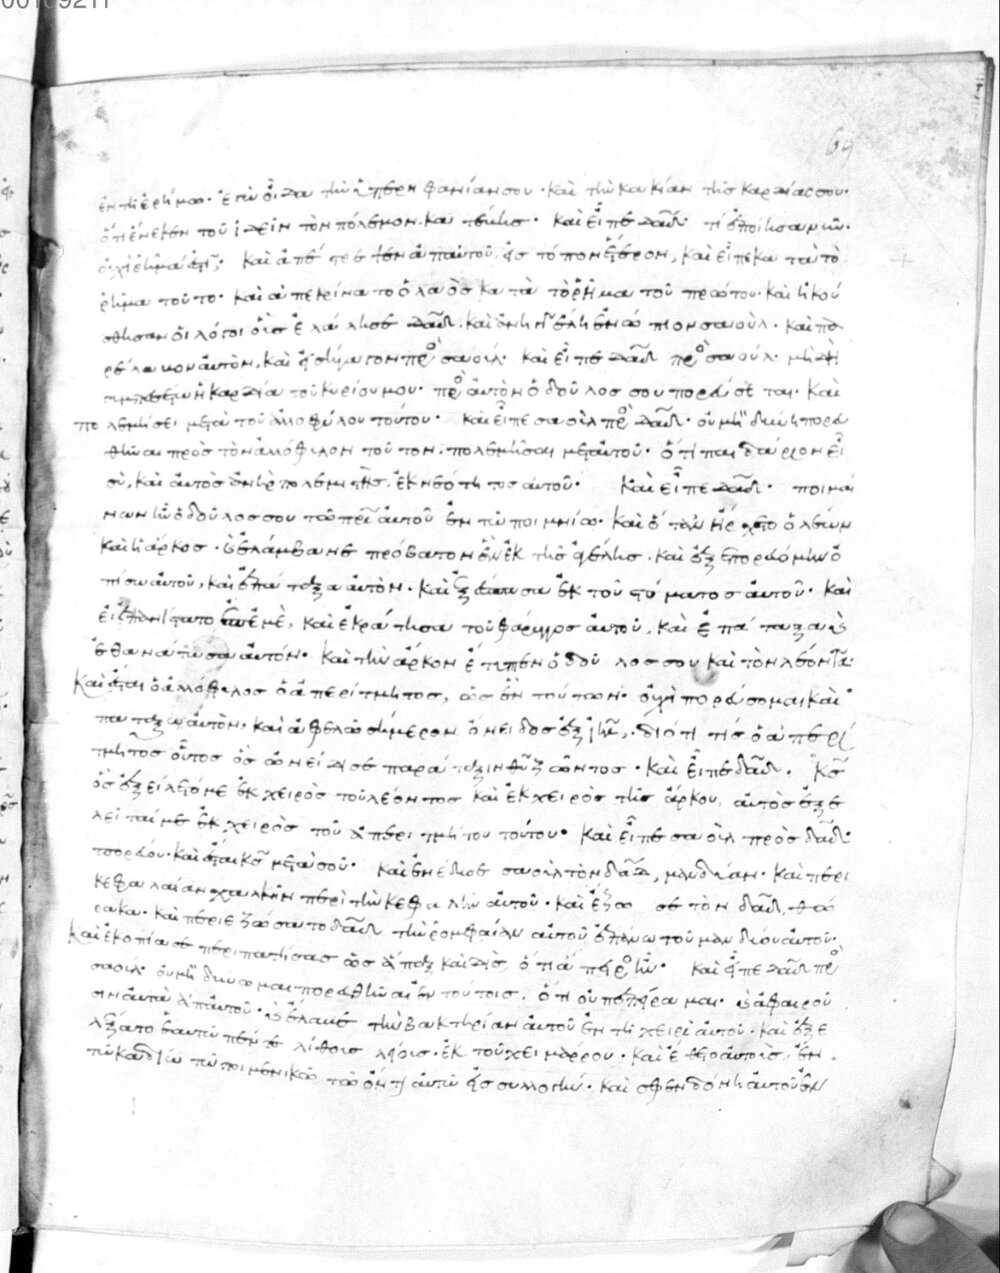 00109211
69
ἐν τῆ ἐρήμω· ἐγὼ οἶδα τὴν ὑπερηφανίαν σου· καὶ τὴν κακίαν τῆς καρδίας σου·
ὅτι ἕνεκεν τοῦ ἰδεῖν τὸν πόλεμον κατέβης· καὶ εἶπε δαδ· τί ἐποίησα νῦν·
οὐχὶ ῥῆμα ἐστι; καὶ ἀπέστρεψεν ἀπαὐτοῦ εἰς τόπον ἕτερον, καὶ εἶπε κατὰ τὸ
ῥῆμα τοῦτο· καὶ ἀπεκρίνατο ὁ λαὸς κατὰ τὸ ῥῆμα τοῦ πρώτου· καὶ ἠκού
σθησαν οἱ λόγοι οὓς ἐλάλησε δαδ· καὶ ἀνηγγέλη ἐνώπιον σαούλ· καὶ πα
ρέλαβον αὐτὸν, καὶ εἰσήγαγον πρὸ σαούλ· καὶ εἶπε δαδ πρὸ σαούλ· μὴ δὴ
συμπεσέτω ἡ καρδία τοῦ κυρίου μου· ὁ δοῦλος σου πορεύσεται· καὶ
πολεμήσει μετὰ τοῦ ἀλλοφύλου τούτου· καὶ εἶπε σαοὺλ πρὸ δαδ· οὐ μὴ δυνήση πορευ
θῆναι πρὸς τὸν ἀλλόφυλον τοῦτον· πολεμῆσαι μεταὐτοῦ· ὅτι παιδάριον εἶ
σὺ, καὶ αὐτὸς ἀνὴρ πολεμιστὴς ἐκ νεότητος αὐτοῦ· καὶ εἶπε δαδ· ποιμαί
νων ἦν ὁ δοῦλος σου τῶ πρι αὐτοῦ ἐν τῶ ποιμνίω· καὶ ὅταν ἤρχετο ὁ λέων
καὶ ἡ ἄρκος· καὶ ἐλάμβανε πρόβατον ἓν ἐκ τῆς ἀγέλης· καὶ ἐξεπορευόμην ὀ
πίσω αὐτοῦ, καὶ ἐπάταξα αὐτὸν· καὶ ἐξέσπασα ἐκ τοῦ στόματος αὐτοῦ· καὶ
εἰ ἐπανίστατο ἐπἐμὲ, καὶ ἐκράτησα τοῦ φάρυγγος αὐτοῦ, καὶ ἐπάταξα καὶ
ἐθανάτωσα αὐτόν· καὶ τὴν ἄρκον ἔτυπτεν ὁ δοῦλος σου καὶ τὸν λέοντα·
καὶ ἔσται ὁ ἀλλόφυλος ὁ ἀπερίτμητος, ὡς ἓν τούτων· οὐχὶ πορεύσομαι καὶ
πατάξω αὐτὸν· καὶ ἀφελῶ σήμερον ὄνειδος ἐξ ιηλ, διότι τίς ὁ ἀπερί
τμητος οὗτος ὃς ὠνείδισε παράταξιν θυ ζῶντος· καὶ εἶπε δαδ· κς
ὃς ἐξείλετό με ἐκ χειρὸς τοῦ λέοντος καὶ ἐκ χειρὸς τῆς ἄρκου, αὐτὸς ἐξε
λεῖταί με ἐκ χειρὸς τοῦ ἀπεριτμήτου τούτου· καὶ εἶπε σαοὺλ πρὸς δαδ·
πορεύου· καὶ ἔσται κς μετὰ σοῦ· καὶ ἐνέδυσε σαοὺλ τὸν δαδ, μανδύαν· καὶ περι
κεφαλαίαν χαλκῆν περὶ τὴν κεφαλὴν αὐτοῦ· καὶ ἔζωσε τὸν δαδ, θώ
ρακα· καὶ περιεζώσατο δαδ τὴν ῥομφαίαν αὐτοῦ ἐπάνω τοῦ μανδύου αὐτοῦ·
καὶ ἐκοπίασε περιπατήσας ὡς ἅπαξ καὶ δὶς, ὅτι ἄπειρος ἦν· καὶ εἶπε δαδ πρὸ
σαούλ· οὐ μὴ δύνωμαι πορευθῆναι ἐν τούτοις, ὅτι οὐ πεπείραμαι· καὶ ἀφαιροῦ
σιν αὐτὰ ἀπαὐτοῦ· καὶ ἔλαβε τὴν βακτηρίαν αὐτοῦ ἐν τῆ χειρὶ αὐτοῦ· καὶ ἐξε
λέξατο ἑαυτῶ πέντε λίθους λείους ἐκ τοῦ χειμάρρου· καὶ ἔθετο αὐτοὺς ἐν
τῶ καδίω τῶ ποιμενικῶ τῶ ὄντι αὐτῶ εἰς συλλογήν· καὶ σφενδόνη αὐτοῦ ἐν